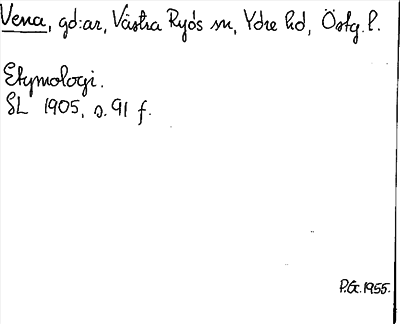 Vena, gd:ar, Västra Ryds sn, Ydre hd, Östg. l.
Etymologi.
SL 1905, s. 91 f.
P.Gr. 1955.